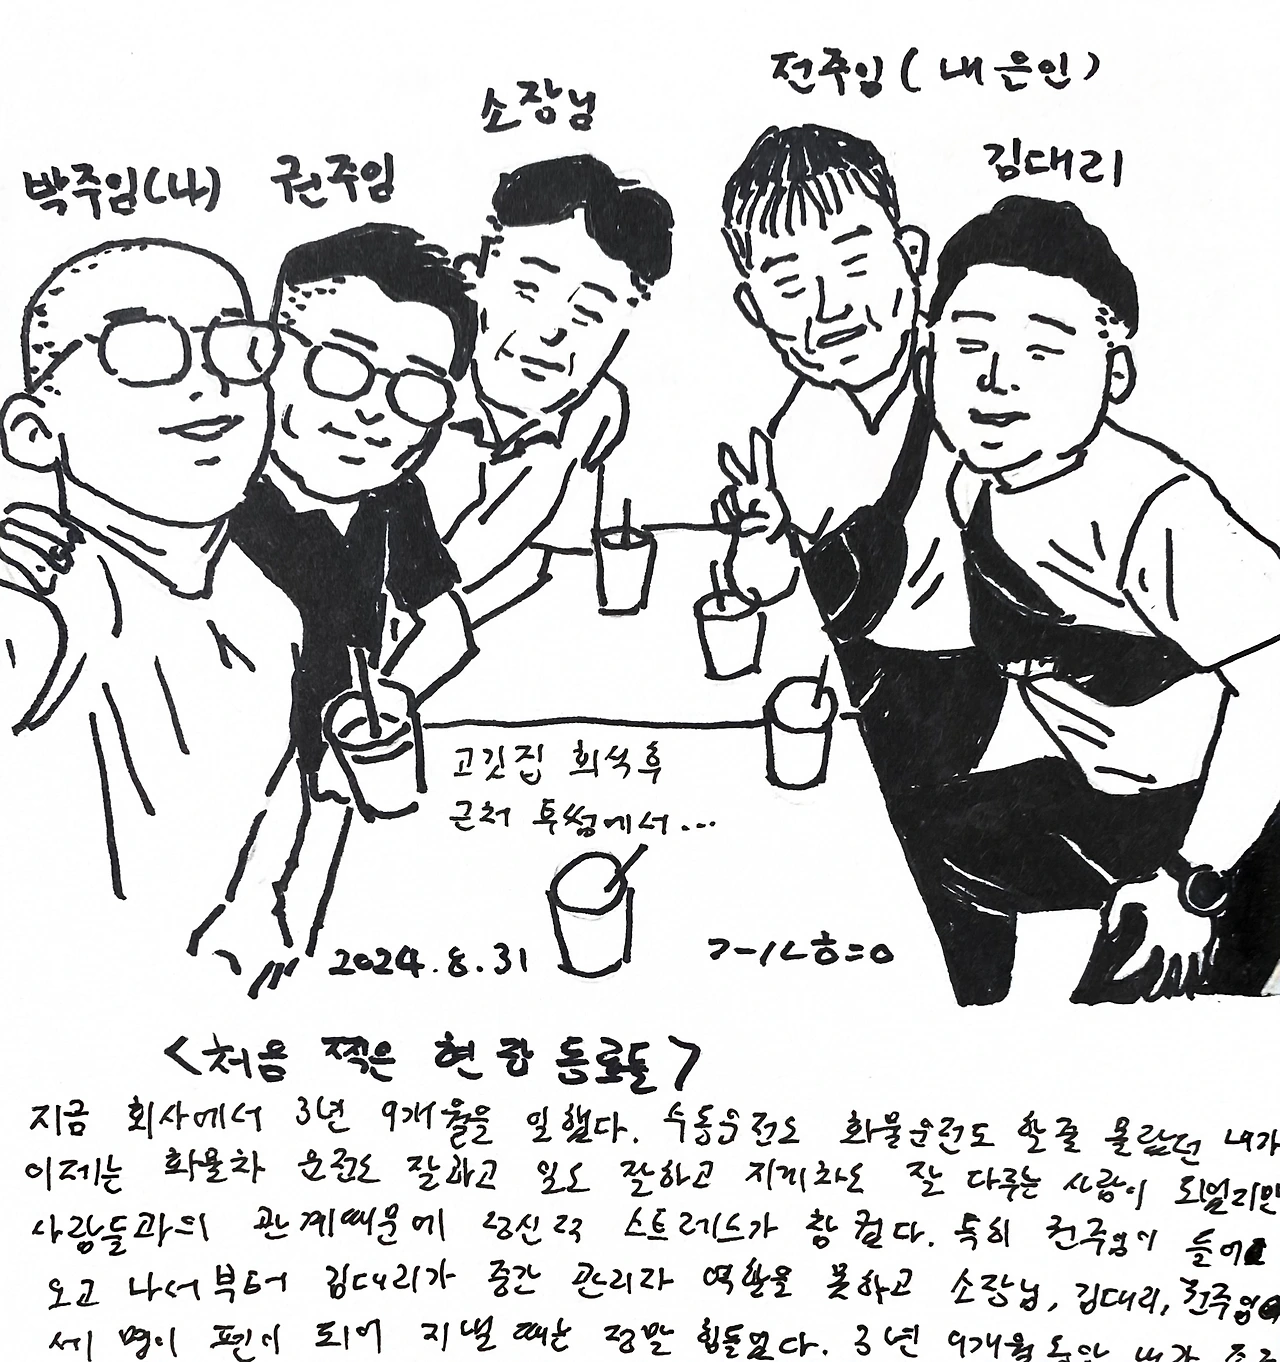 전주임(내 은인)
소장님
김대리
박주임(나)
권주임
고깃집 회식 후
근처 투썸에서...
2024.8.31
<처음 찍은 현장 동료들>
지금 회사에서 3년 9개월을 일했다. 수동운전도 화물운전도 할줄 몰랐던 내가
이제는 화물차 운전도 잘하고 일도 잘하고 지게차도 잘 다루는 사람이 되었지만
사람들과의 관계때문에 정신적 스트레스가 참 컸다. 특히 전주임이 들어
오고 나서부터 김대리가 중간 관리자 역할을 못하고 소장님, 김대리, 전주임
세 명이 편이 되어 지낼 때는 정말 힘들었다. 3년 9개월 동안 내가